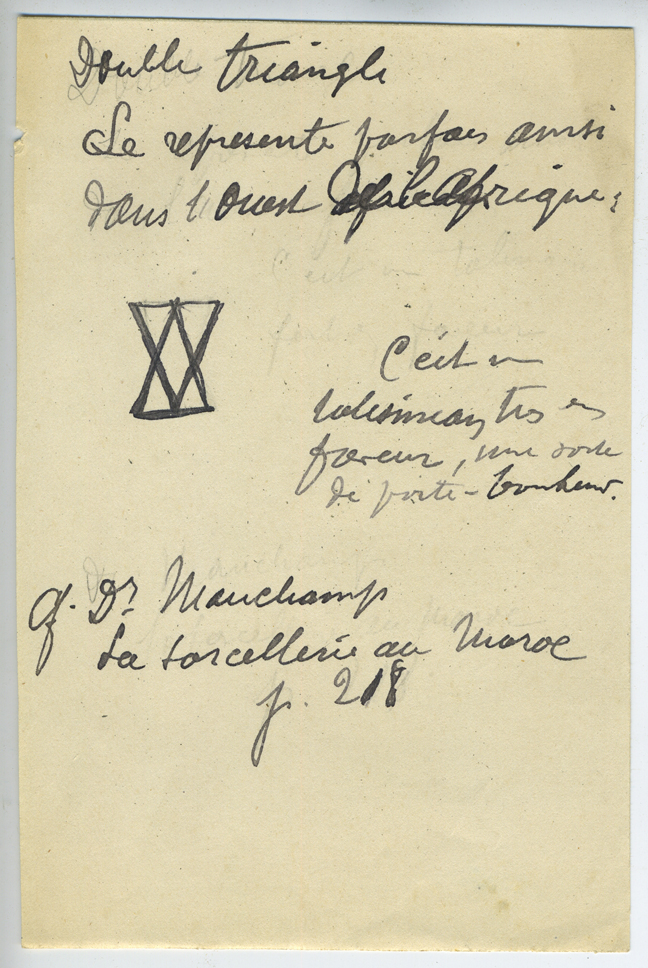 Double triangle
Se représente parfois ainsi
dans l'Ouest Afrique:
C'est un
talisman très en
faveur, une sorte
de porte-bonheur.
cf. Dr Mauchamp
La sorcellerie au Maroc
p. 218